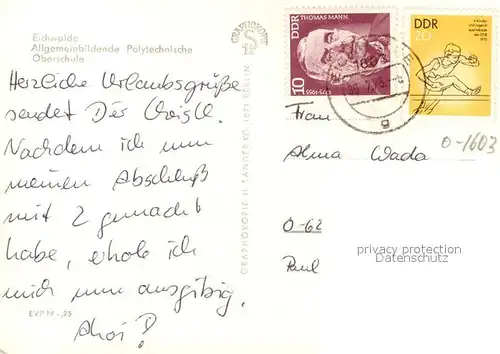 Eichwalde
Allgemeinbildende Polytechnische
Oberschule
Herzliche Urlaubsgrüße
sendet Dir
Nachdem ich nun
meinen Abschluß
mit 2 gemacht
habe, erhole ich
mich nun ausgibig.
Ahoi!
EVP M -,25
GRAPHOKOPIE H. SANDER KG. 1071 BERLIN
GRAPHOKOPIE
DDR THOMAS MANN
10
1875-1955
DDR
20
Frau
Alma Wada
O-1603
O-62
Paul
privacy protection
Datenschutz